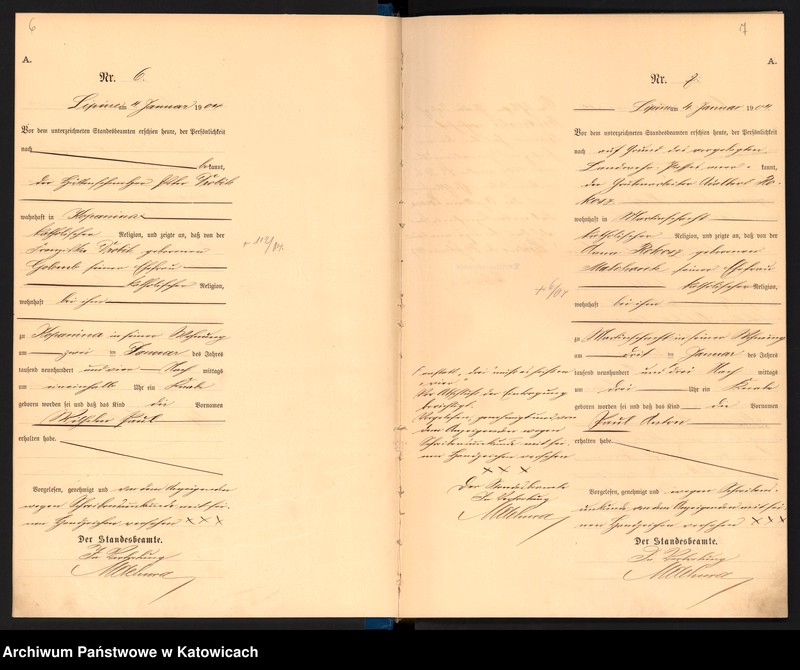 6
A.
Nr. 6.
Lipine am 4 Januar 1904
Vor dem unterzeichneten Standesbeamten erschien heute, der Persönlichkeit
nach
bekannt,
der Hüttenschmelzer Peter
wohnhaft in Kopanina
katholischer Religion, und zeigte an, daß von der
Franziska geborenen
seiner Ehefrau
katholischer Religion,
wohnhaft bei ihm
zu Kopanina in seiner Wohnung
am zwei ten Januar des Jahres
tausend neunhundert und vier Nach mittags
um eineinhalb Uhr ein Knabe
geboren worden sei und daß das Kind die Vornamen
Wilhelm Paul
erhalten habe.
Vorgelesen, genehmigt und von dem Anzeigenden
wegen Schreibensunkunde mit sei-
nen Handzeichen versehen XXX
Der Standesbeamte.
In Vertretung
7
A.
Nr. 7.
Lipine am 4. Januar 1904.
Vor dem unterzeichneten Standesbeamten erschien heute, der Persönlichkeit
nach auf Grund des vorgelegten
Landwehr Passes aner- kannt,
der Grubenarbeiter
wohnhaft in Martinschacht
katholischer Religion, und zeigte an, daß von der
geborenen
seiner Ehefrau
katholischer Religion,
wohnhaft bei ihm
zu Martinschacht in seiner Wohnung
am drit ten Januar des Jahres
tausend neunhundert und drei Nach mittags
um drei Uhr ein Knabe
geboren worden sei und daß das Kind die Vornamen
Paul Anton
erhalten habe.
Vorgelesen, genehmigt und wegen Schreibens-
unkunde von dem Anzeigenden mit sei-
nen Handzeichen versehen XXX
Der Standesbeamte.
In Vertretung
Anstatt „drei“ muß es heißen
„vier“
Vor Abschluß der Eintragung
berichtigt.
Vorgelesen, genehmigt und von
dem Anzeigenden wegen
Schreibensunkunde mit sei-
nen Handzeichen versehen
XXX
Der Standesbeamte
In Vertretung
Archiwum Państwowe w Katowicach